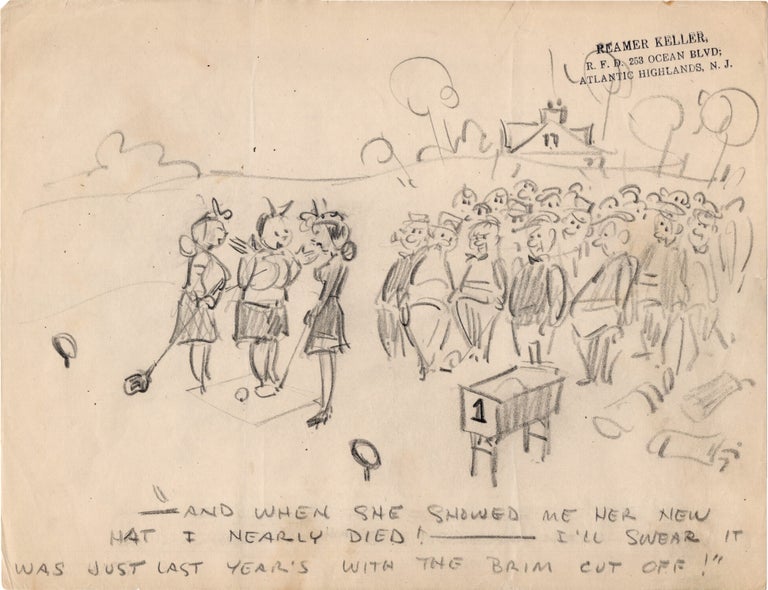 REAMER KELLER,
R. F. D. 253 OCEAN BLVD;
ATLANTIC HIGHLANDS, N. J.
1
"—AND WHEN SHE SHOWED ME HER NEW
HAT I NEARLY DIED!—— I'LL SWEAR IT
WAS JUST LAST YEAR'S WITH THE BRIM CUT OFF!"